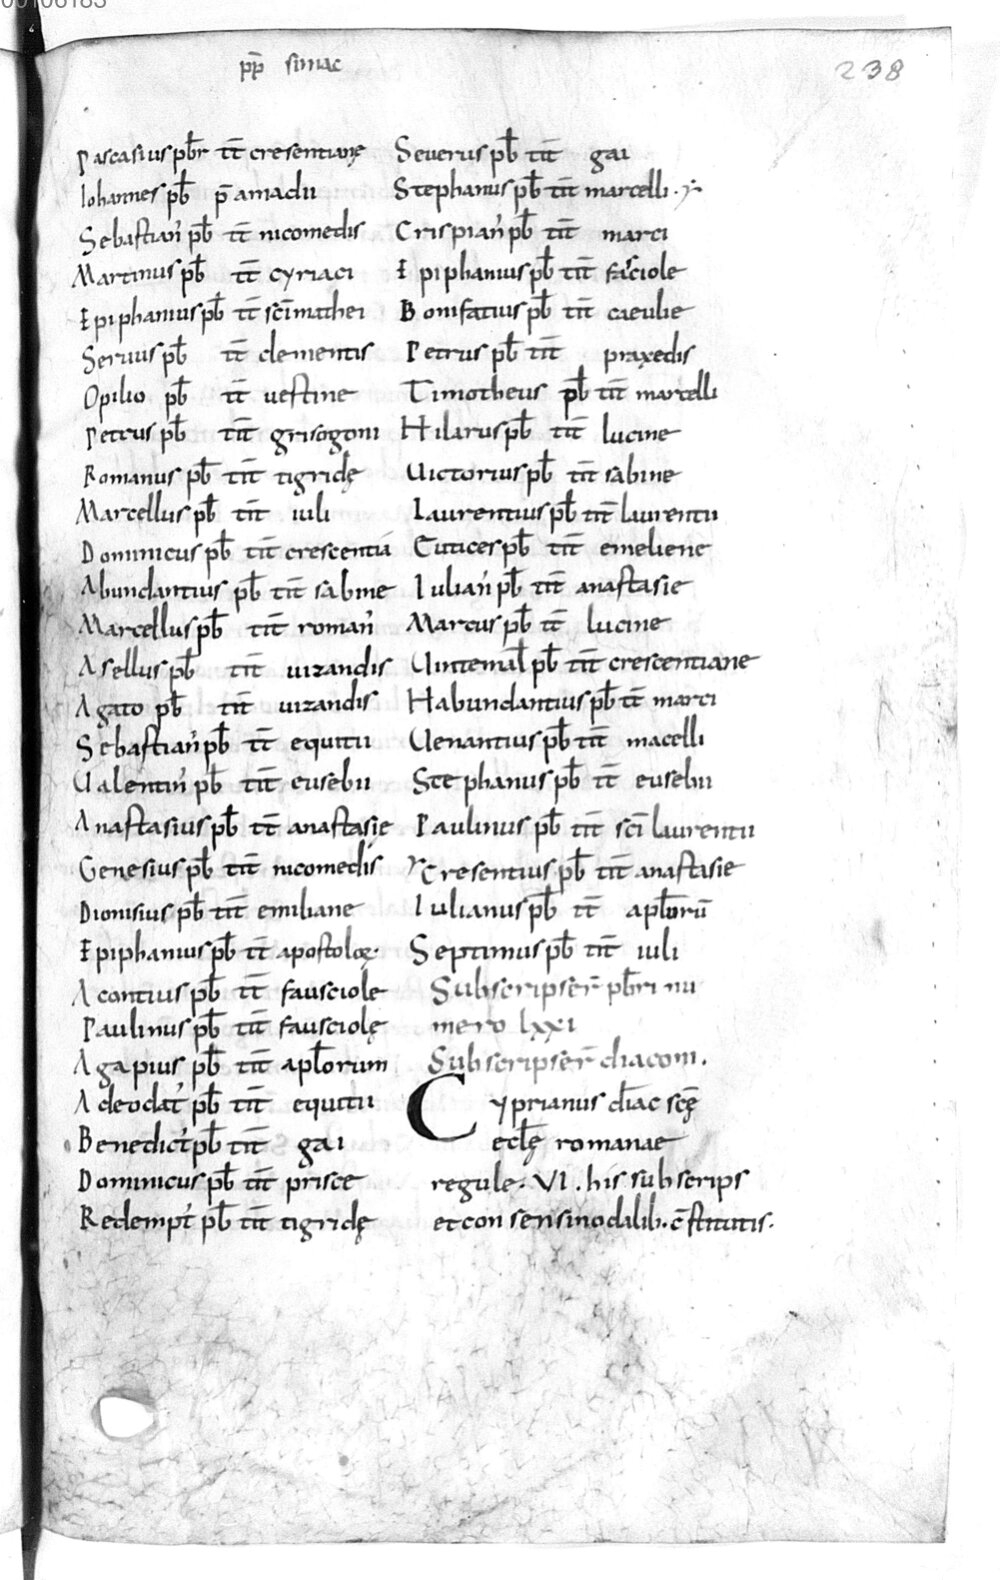 00106183
pp̄ simac
238
Pascasius pƀr tt̄ cresentianę
Iohannes pƀ p̄ amadii
Sebastian̄ pƀ tt̄ nicomedis
Martinus pƀ tt̄ cyriaci
Epiphanius pƀ tt̄ sc̄i mathei
Seruus pƀ tt̄ clementis
Opilio pƀ tt̄ uestine
Petrus pƀ tit̄ grisogoni
Romanus pƀ tit̄ tigridę
Marcellus pƀ tit̄ iuli
Dominicus pƀ tit̄ crescentiā
Abundantius pƀ tit̄ sabine
Marcellus pƀ tit̄ roman̄
Asellus pƀ tit̄ uizandis
Agato pƀ tit̄ uizandis
Sebastian̄ pƀ tt̄ equitii
Ualentin̄ pƀ tit̄ eusebii
Anastasius pƀ tt̄ anastasię
Genesius pƀ tit̄ nicomedis
Dionisius pƀ tit̄ emiliane
Epiphanius pƀ tt̄ apostolor̨·
Acontius pƀ tt̄ fausciole
Paulinus pƀ tit̄ fausciolę
Agapius pƀ tit̄ apl̄orum
Adeodat̄ pƀ tit̄ equitii
Benedict̄ pƀ tit̄ gai
Dominicus pƀ tit̄ prisce
Redempt̄ pƀ tit̄ tigridę
Seuerus pƀ tit̄ gai
Stephanus pƀ tit̄ marcelli·
Crispian̄ pƀ tit̄ marci
Epiphanius pƀ tit̄ fasciole
Bonifatius pƀ tit̄ caeulie
Petrus pƀ tit̄ praxedis
Timotheus pƀ tit̄ martelli
Hilarus pƀ tit̄ lucine
Uictorius pƀ tit̄ sabine
Laurentius pƀ tit̄ laurentii
Cutices pƀ tit̄ emeliene
Iulian̄ pƀ tit̄ anastasie
Marcus pƀ tt̄ lucine
Uintemal̄ pƀ tit̄ crescentiane
Habundantius pƀ tt̄ marci
Uenantius pƀ tit̄ macelli
Stephanus pƀ tt̄ eusebii
Paulinus pƀ tit̄ sc̄i laurentii
Cresentius pƀ tit̄ anastasie
Iulianus pƀ tt̄ apl̄orū
Septimus pƀ tit̄ iuli
Subscripser̄ pƀri nu
mero lxxi
Subscripser̄ diaconi.
Cyprianus diac̄ scę̄
eclę̄ romanae
regule· VI. his subscrips
et consensi sinodalib· c̄stitutis·